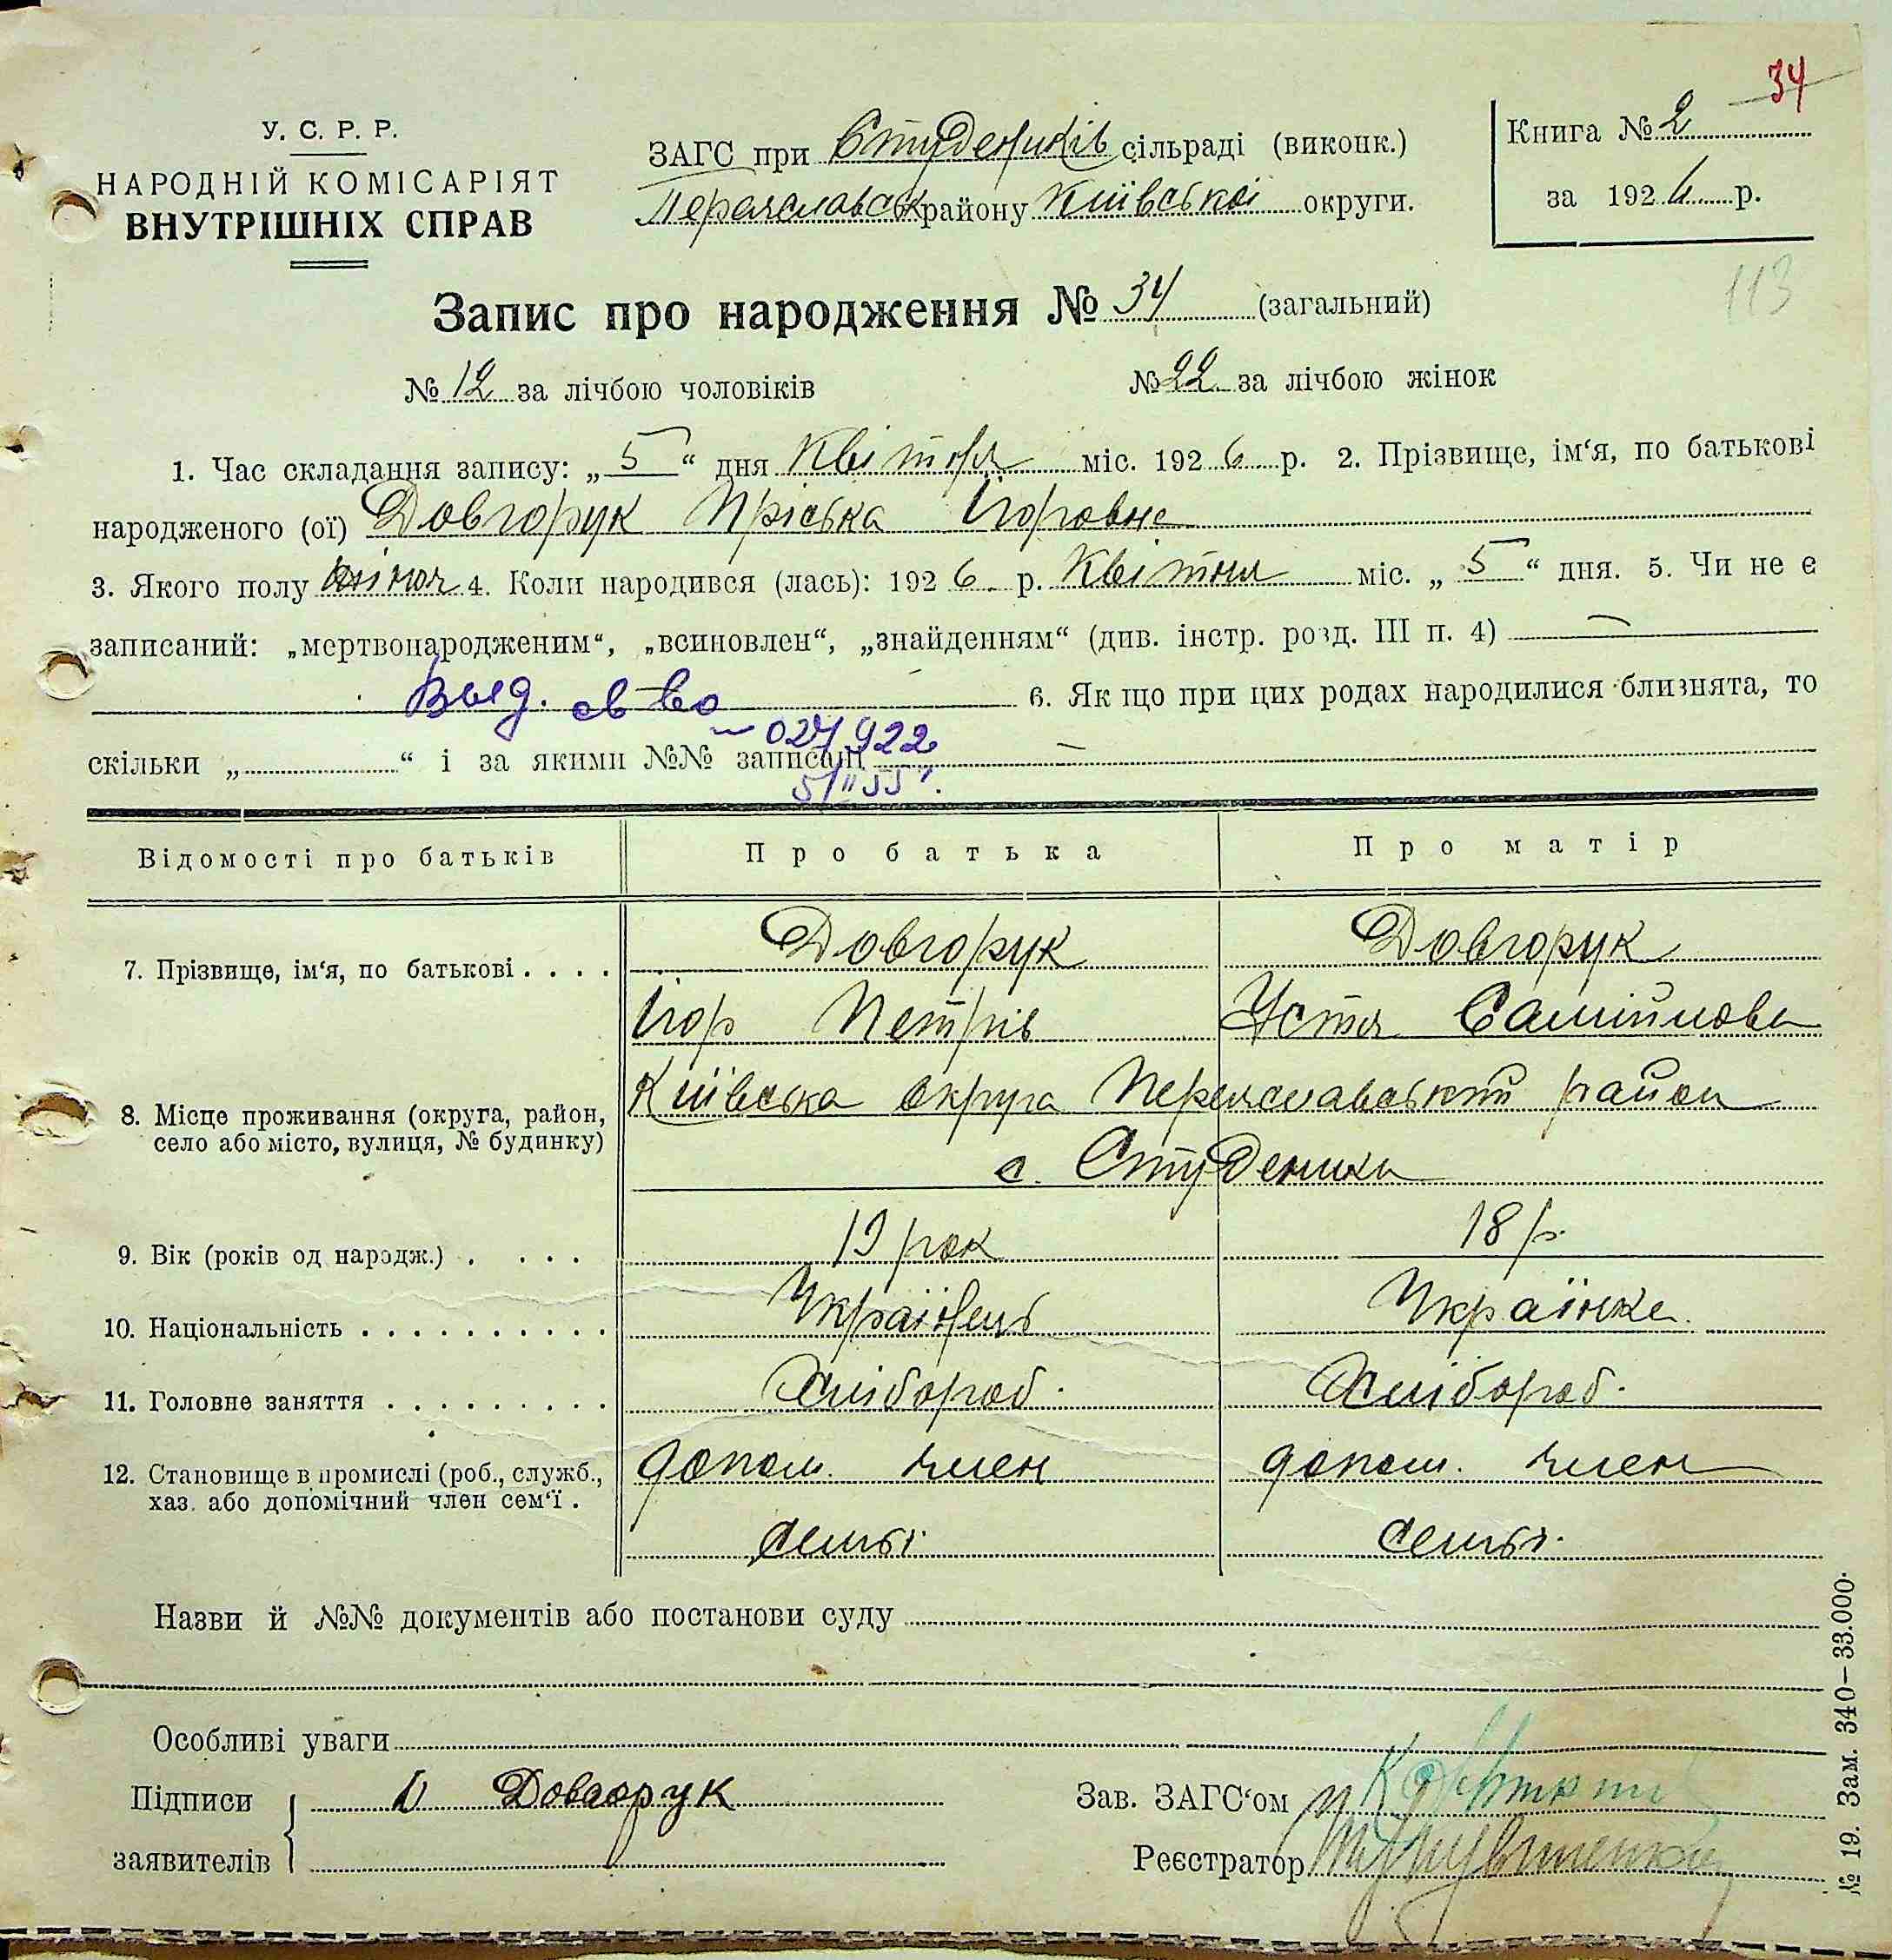 34
У. С. Р. Р.
НАРОДНІЙ КОМІСАРІЯТ
ВНУТРІШНІХ СПРАВ
ЗАГС при Студеників сільраді (виконк.)
Переяславськ району Київської округи.
Книга № 2
за 1926 р.
113
Запис про народження № 34 (загальний)
№ 12 за лічбою чоловіків № 22 за лічбою жінок
1. Час складання запису: „ 5 “ дня Квітня міс. 1926 р. 2. Прізвище, ім‘я, по батькові
народженого (ої) Довгорук Пріська Ігоровна
3. Якого полу жіноч 4. Коли народився (лась): 1926 р. Квітня міс. „ 5 “ дня. 5. Чи не є
записаний: „мертвонародженим“, „всиновлен“, „знайденням“ (див. інстр. розд. III п. 4) —
Выд. св-во 6. Як що при цих родах народилися близнята, то
024922
скільки „ “ і за якими №№ записані —
5/II 55
Відомості про батьків Про батька Про матір
7. Прізвище, ім‘я, по батькові Довгорук Довгорук
Ігор Петрів Устя Самійлова
8. Місце проживання (округа, район, село або місто, вулиця, № будинку) Київська округа Переяславський район
с. Студеники
9. Вік (років од народж.) 19 рок 18 р.
10. Національність Українець Українка
11. Головне заняття Хлібороб. Хлібороб.
12. Становище в промислі (роб., служб., хаз. або допомічний член сем‘ї. допом. член допом. член
семьі семьі
Назви й №№ документів або постанови суду
Особливі уваги
Підписи заявителів Довгорук
Зав. ЗАГС‘ом
Реєстратор
№ 19. Зам. 340—33.000.